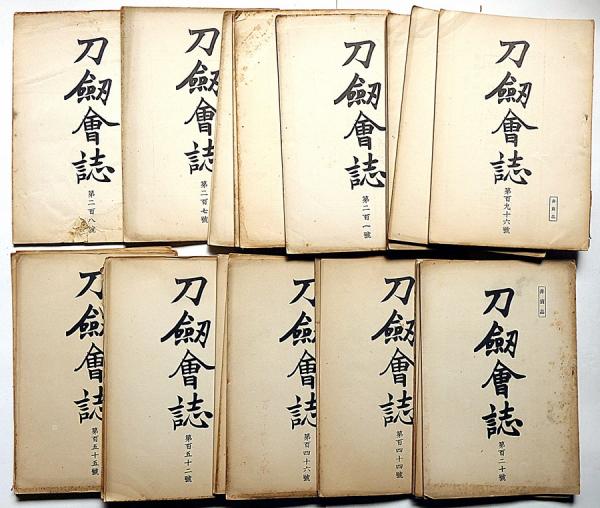 刀劔會誌
第二百八號
刀劔會誌
第二百七號
刀劔會誌
第二百一號
刀劔會誌
第百九十六號
非賣品
刀劔會誌
第百五十五號
刀劔會誌
第百五十二號
刀劔會誌
第百四十六號
刀劔會誌
第百四十四號
刀劔會誌
第百二十號
非賣品